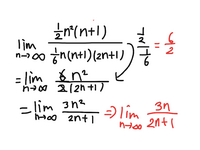 lim n→∞ (½n²(n+1))/(⅙n(n+1)(2n+1))
½/⅙ = 6/2
= lim n→∞ 6n²/(2(2n+1))
= lim n→∞ 3n²/(2n+1) ⇒ lim n→∞ 3n/(2n+1)